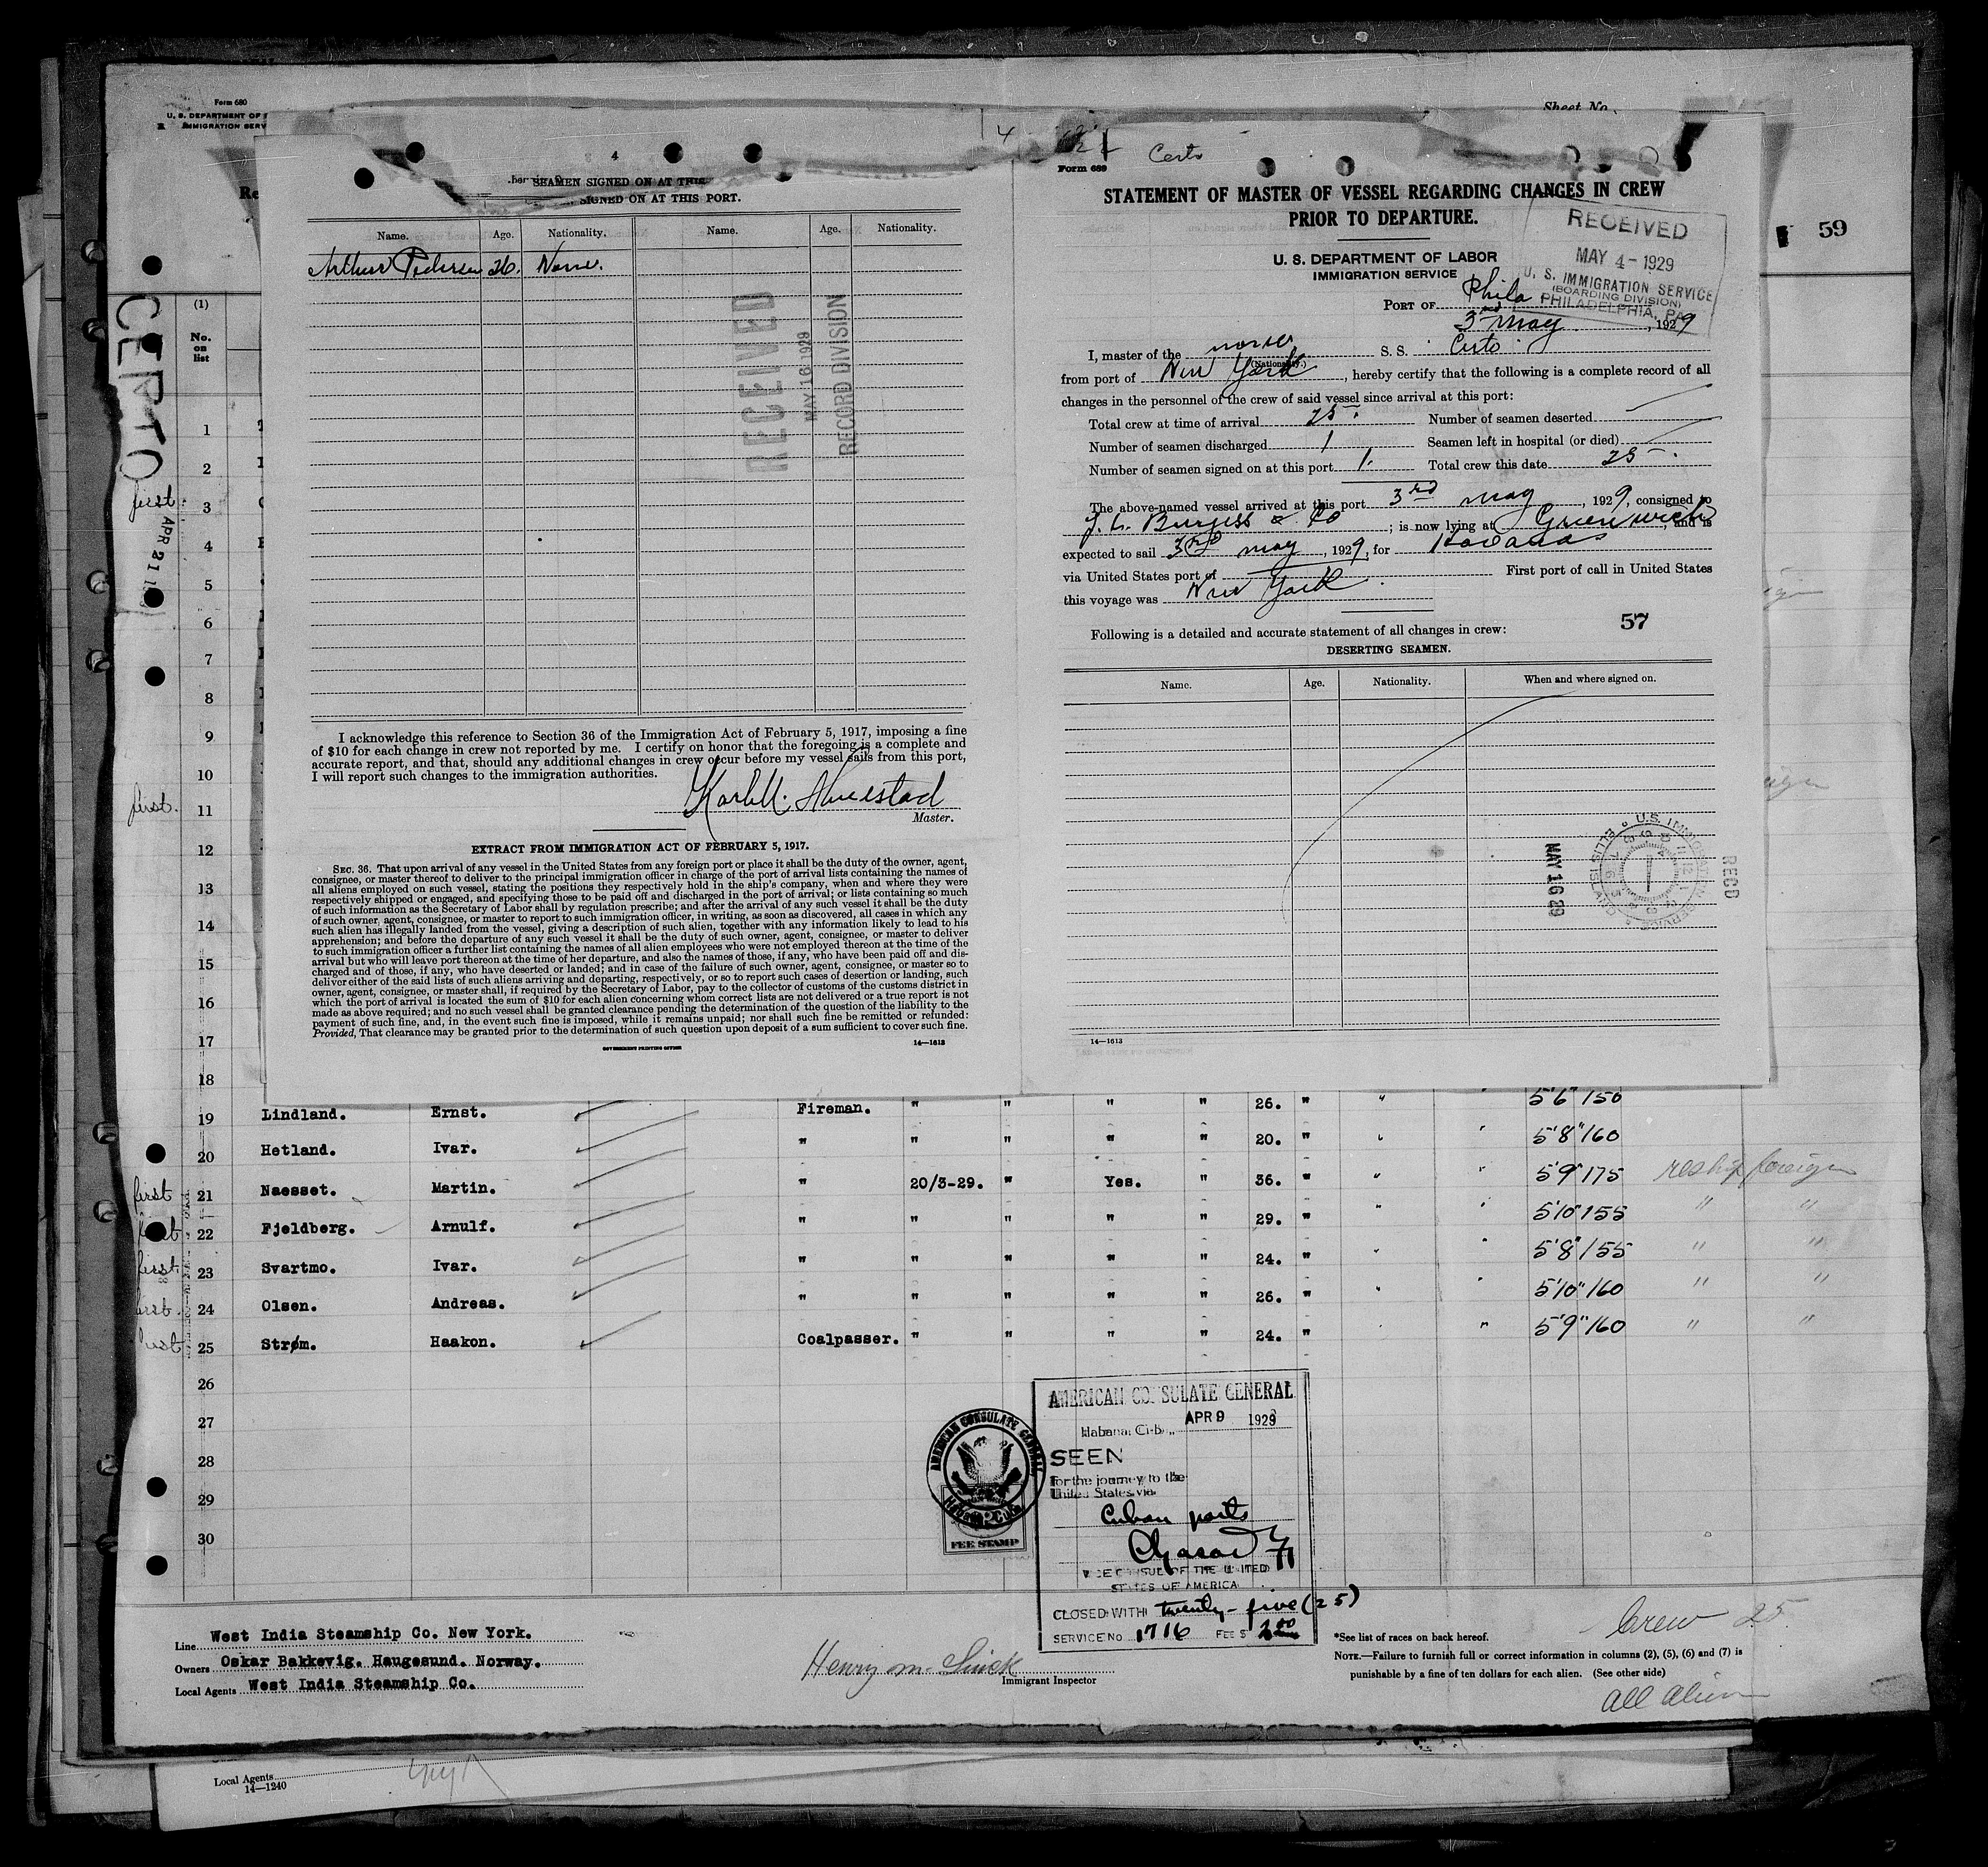 Form 680
U. S. DEPARTMENT OF
IMMIGRATION SERV
Sheet No.
59
CERTO
APR 21
4
SEAMEN SIGNED ON AT THIS
SIGNED ON AT THIS PORT.
Name. Age. Nationality. Name. Age. Nationality.
Arthur Pedersen 26. Norw.
RECEIVED
MAY 16 1929
RECORD DIVISION
I acknowledge this reference to Section 36 of the Immigration Act of February 5, 1917, imposing a fine
of $10 for each change in crew not reported by me. I certify on honor that the foregoing is a complete and
accurate report, and that, should any additional changes in crew occur before my vessel sails from this port,
I will report such changes to the immigration authorities.
Master.
EXTRACT FROM IMMIGRATION ACT OF FEBRUARY 5, 1917.
SEC. 36. That upon arrival of any vessel in the United States from any foreign port or place it shall be the duty of the owner, agent,
consignee, or master thereof to deliver to the principal immigration officer in charge of the port of arrival lists containing the names of
all aliens employed on such vessel, stating the positions they respectively hold in the ship's company, when and where they were
respectively shipped or engaged, and specifying those to be paid off and discharged in the port of arrival; or lists containing so much
of such information as the Secretary of Labor shall by regulation prescribe; and after the arrival of any such vessel it shall be the duty
of such owner, agent, consignee, or master to report to such immigration officer, in writing, as soon as discovered, all cases in which any
such alien has illegally landed from the vessel, giving a description of such alien, together with any information likely to lead to his
apprehension; and before the departure of any such vessel it shall be the duty of such owner, agent, consignee, or master to deliver
to such immigration officer a further list containing the names of all alien employees who were not employed thereon at the time of the
arrival but who will leave port thereon at the time of her departure, and also the names of those, if any, who have been paid off and dis-
charged and of those, if any, who have deserted or landed; and in case of the failure of such owner, agent, consignee, or master so to
deliver either of the said lists of such aliens arriving and departing, respectively, or so to report such cases of desertion or landing, such
owner, agent, consignee, or master shall, if required by the Secretary of Labor, pay to the collector of customs of the customs district in
which the port of arrival is located the sum of $10 for each alien concerning whom correct lists are not delivered or a true report is not
made as above required; and no such vessel shall be granted clearance pending the determination of the question of the liability to the
payment of such fine, and, in the event such fine is imposed, while it remains unpaid; nor shall such fine be remitted or refunded:
Provided, That clearance may be granted prior to the determination of such question upon deposit of a sum sufficient to cover such fine.
GOVERNMENT PRINTING OFFICE 14—1613
Certo
Form 689
STATEMENT OF MASTER OF VESSEL REGARDING CHANGES IN CREW
PRIOR TO DEPARTURE.
RECEIVED
MAY 4 - 1929
U. S. IMMIGRATION SERVICE
(BOARDING DIVISION)
PHILADELPHIA, PA.
U. S. DEPARTMENT OF LABOR
IMMIGRATION SERVICE
PORT OF Phila
3rd May, 1929
I, master of the norse S. S. Certo
(Nationality.)
from port of New York, hereby certify that the following is a complete record of all
changes in the personnel of the crew of said vessel since arrival at this port:
Total crew at time of arrival 25. Number of seamen deserted
Number of seamen discharged 1 Seamen left in hospital (or died)
Number of seamen signed on at this port 1. Total crew this date 25.
The above-named vessel arrived at this port 3rd May, 1929, consigned to
J. A. Burgess & Co; is now lying at Greenwich, and is
expected to sail 3rd May, 1929, for Havana
via United States port of First port of call in United States
this voyage was New York.
57
Following is a detailed and accurate statement of all changes in crew:
DESERTING SEAMEN.
Name. Age. Nationality. When and where signed on.
MAY 16 29
RECD
14—1613
(1)
No. on list
1
2
first 3
4
5
6
7
8
9
10
first. 11
12
13
14
15
16
17
18
19 Lindland. Ernst. Fireman. " " " " 26. " " 5'6" 150
20 Hetland. Ivar. " " " " " 20. " " " 5'8" 160
first 21 Naesset. Martin. " 20/3-29. " Yes. " 36. " " " 5'9" 175 reship foreign
22 Fjeldberg. Arnulf. " " " " " 29. " " " 5'10" 155 " "
first 23 Svartmo. Ivar. " " " " " 24. " " " 5'8" 155 " "
first. 24 Olsen. Andreas. " " " " " 26. " " " 5'10" 160 " "
first 25 Strøm. Haakon. Coalpasser. " " " " 24. " " 5'9" 160 " "
26
27
28
29
30
AMERICAN CONSULATE GENERAL
Habana, Cuba
FEE STAMP
AMERICAN CONSULATE GENERAL
APR 9 1929
Habana, Cuba,
SEEN
For the journey to the
United States via
Cuban ports
VICE CONSUL OF THE UNITED
STATES OF AMERICA
CLOSED WITH twenty-five (25)
SERVICE NO 1716 FEE $ 2.00
Line West India Steamship Co. New York.
Owners Oskar Bakkevig. Haugesund. Norway.
Local Agents West India Steamship Co.
Immigrant Inspector
*See list of races on back hereof.
NOTE.—Failure to furnish full or correct information in columns (2), (5), (6) and (7) is
punishable by a fine of ten dollars for each alien. (See other side)
Crew 25
All alien
Local Agents
14—1240